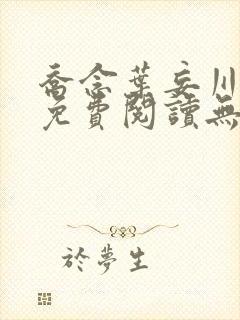 喬念葉妄川
免費閱讀無
於夢生